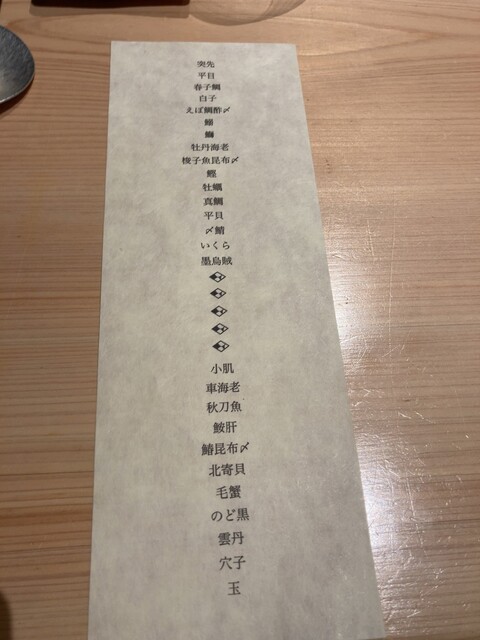 突先
平目
春子鯛
白子
えぼ鯛酢〆
鰯
鰤
牡丹海老
梭子魚昆布〆
鰹
牡蠣
真鯛
平貝
〆鯖
いくら
墨烏賊
小肌
車海老
秋刀魚
鮟肝
鰆昆布〆
北寄貝
毛蟹
のど黒
雲丹
穴子
玉